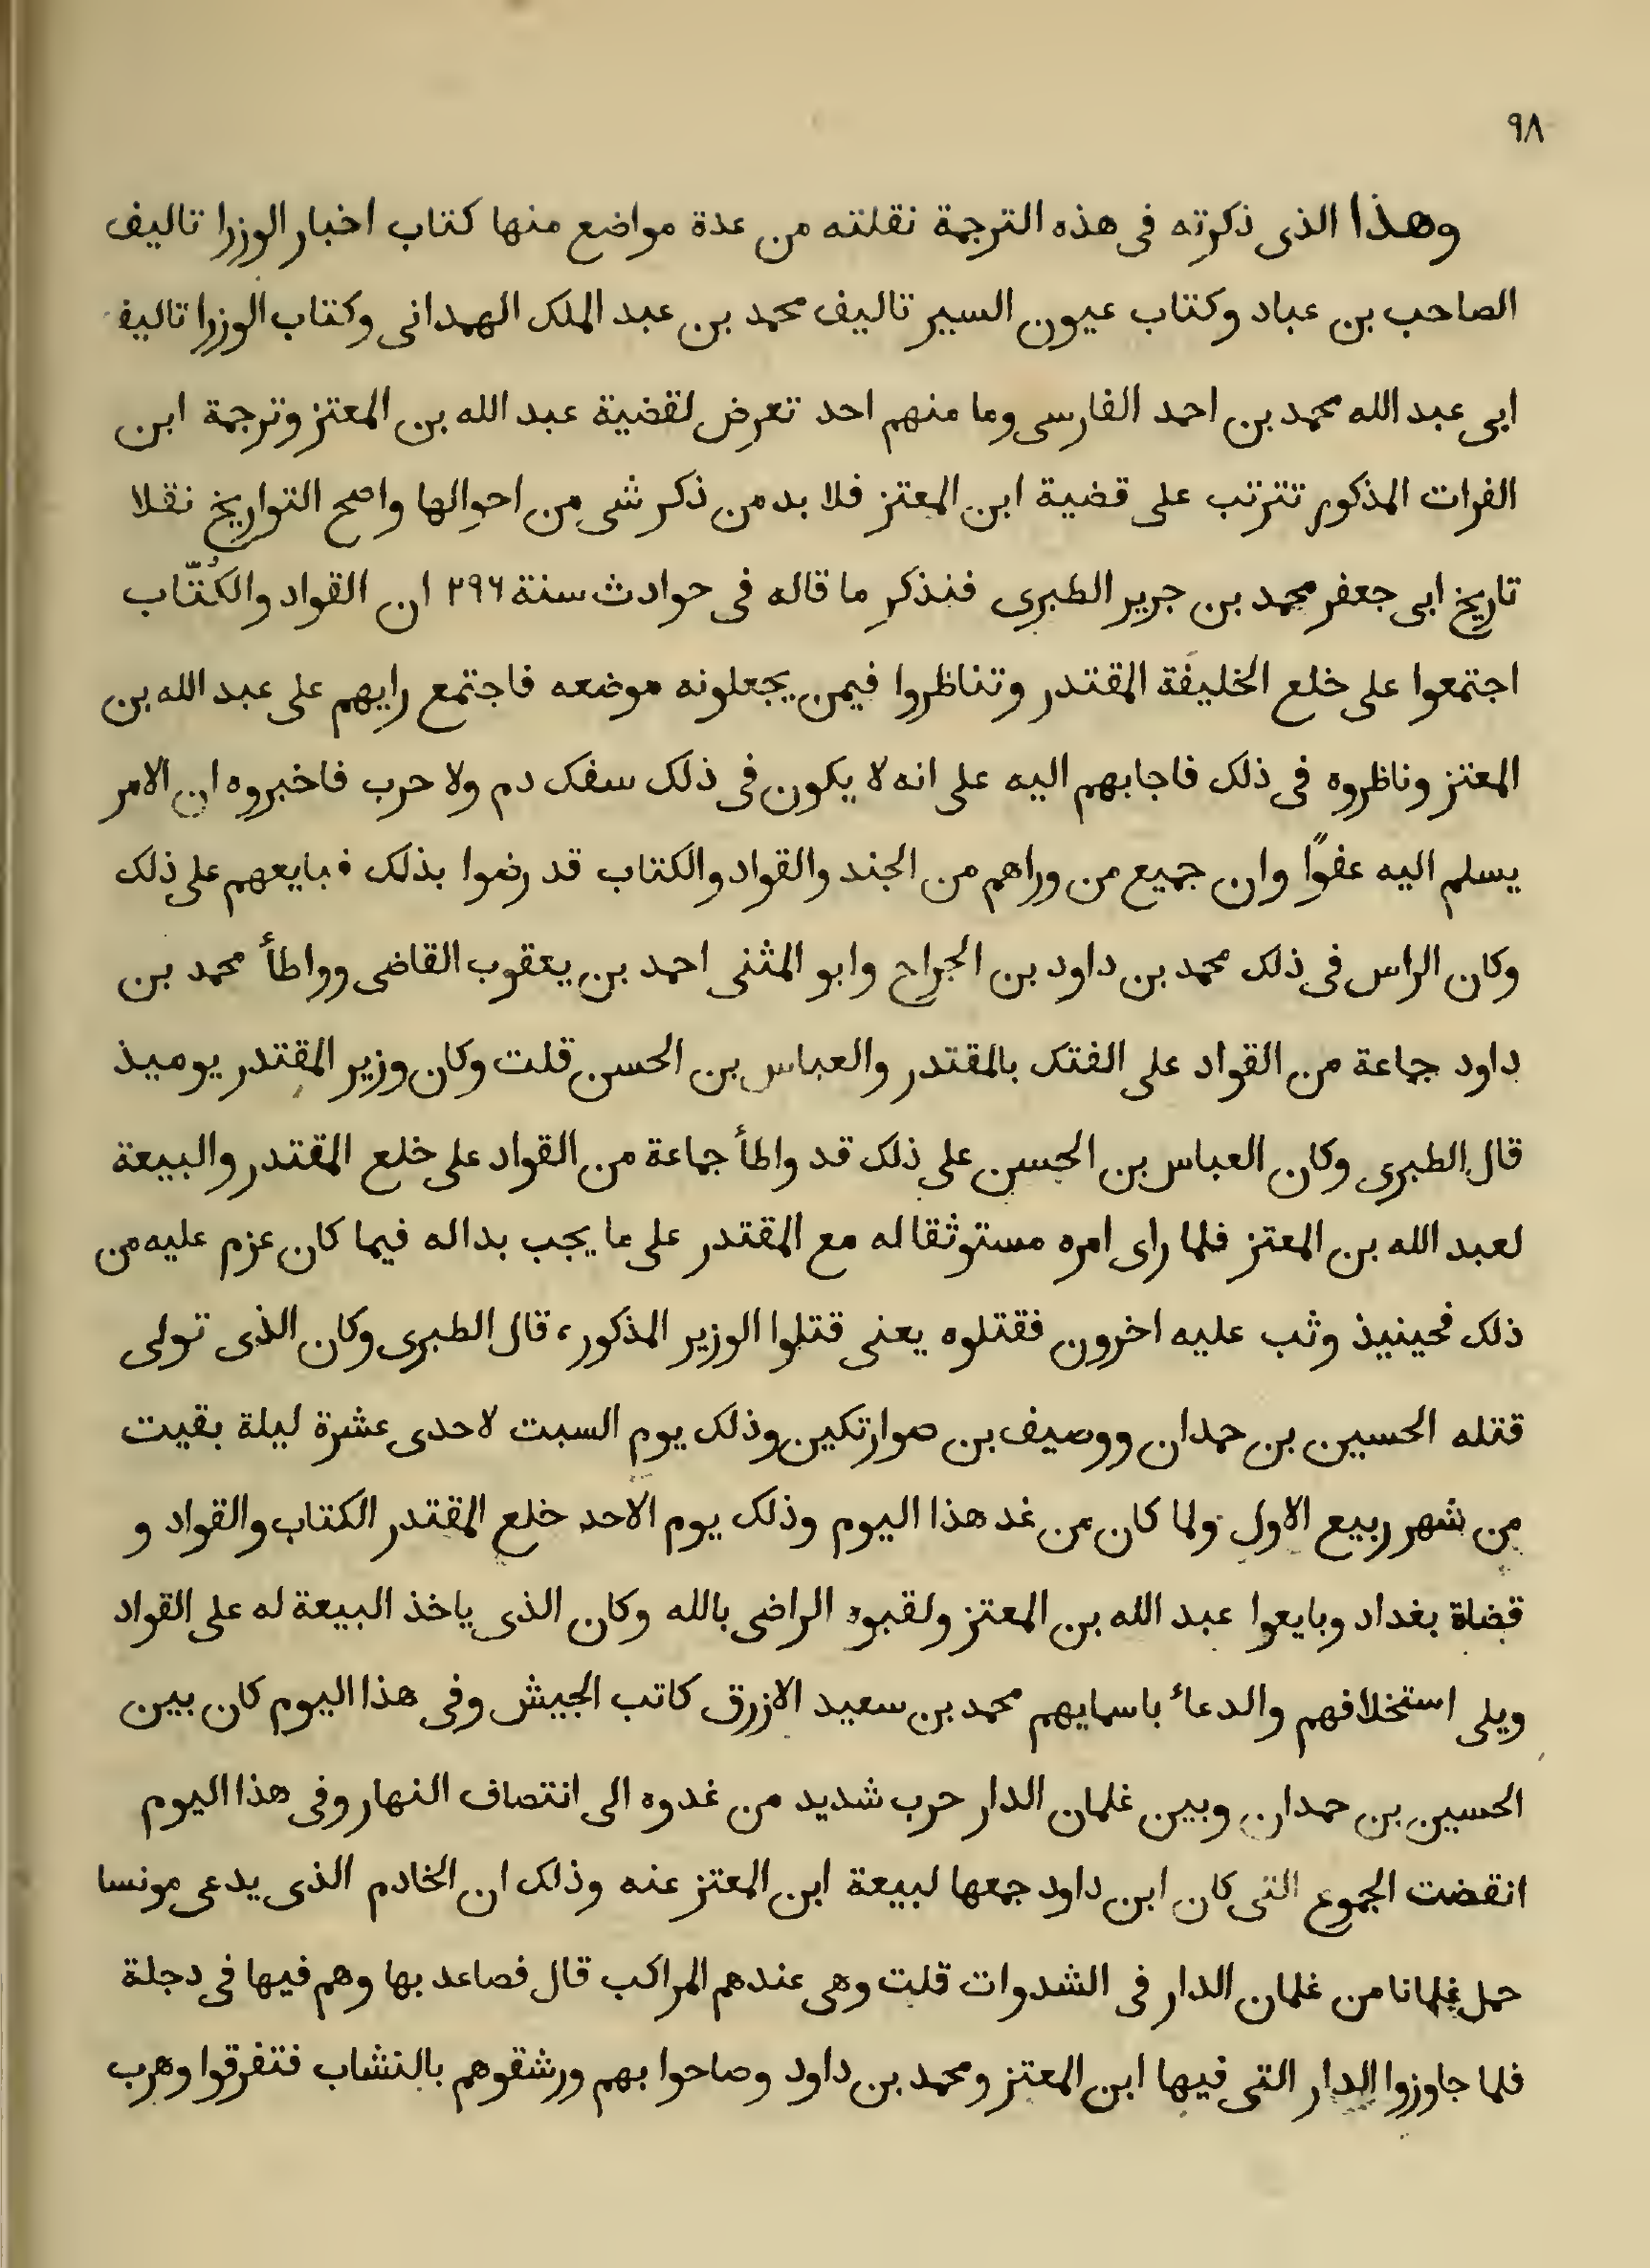 ٩٨
وهذا الذى ذكرته فى هذه الترجمة نقلته من عدة مواضع منها كتاب اخبار الوزرا تاليف
الصاحب بن عباد وكتاب عيون السير تاليف محمد بن عبد الملك الهمدانى وكتاب الوزرا تاليف
ابى عبد الله محمد بن احمد الفارسى وما منهم احد تعرض لقضية عبد الله بن المعتز وترجمة ابن
الفرات المذكور تترتب على قضية ابن المعتز فلا بد من ذكر شى من احوالها واصح التواريخ نقلا
تاريخ ابى جعفر محمد بن جرير الطبرى فنذكر ما قاله فى حوادث سنة ٢٩٦ ان القواد والكُتّاب
اجتمعوا على خلع الخليفة المقتدر وتناظروا فيمن يجعلونه موضعه فاجتمع رايهم على عبد الله بن
المعتز وناظروه فى ذلك فاجابهم اليه على انه لا يكون فى ذلك سفك دم ولا حرب فاخبروه ان الامر
يسلم اليه عفوًا وان جميع من وراهم من الجند والقواد والكتاب قد رضوا بذلك فبايعهم على ذلك
وكان الراس فى ذلك محمد بن داود بن الجراح وابو المثنى احمد بن يعقوب القاضى وواطأ محمد بن
داود جماعة من القواد على الفتك بالمقتدر والعباس بن الحسن قلت وكان وزير المقتدر يوميذ
قال الطبرى وكان العباس بن الحسن على ذلك قد واطأ جماعة من القواد على خلع المقتدر والبيعة
لعبد الله بن المعتز فلما راى امره مستوثقا له مع المقتدر على ما يجب بدا له فيما كان عزم عليه من
ذلك فحينيذ وثب عليه اخرون فقتلوه يعنى قتلوا الوزير المذكور، قال الطبرى وكان الذى تولى
قتله الحسين بن حمدان ووصيف بن صوارتكين وذلك يوم السبت لاحدى عشرة ليلة بقيت
من شهر ربيع الاول ولما كان من غد هذا اليوم وذلك يوم الاحد خلع المقتدر الكتاب والقواد و
قضاة بغداد وبايعوا عبد الله بن المعتز ولقبوه الراضى بالله وكان الذى ياخذ البيعة له على القواد
ويلى استخلافهم والدعاء باسمايهم محمد بن سعيد الازرق كاتب الجيش وفى هذا اليوم كان بين
الحسين بن حمدان وبين غلمان الدار حرب شديد من غدوه الى انتصاف النهار وفى هذا اليوم
انقضت الجموع التى كان ابن داود جمعها لبيعة ابن المعتز عنه وذلك ان الخادم الذى يدعى مونسا
حمل غلمانا من غلمان الدار فى الشدوات قلت وهى عندهم المراكب قال فصاعد بها وهم فيها فى دجلة
فلما جاوزوا الدار التى فيها ابن المعتز ومحمد بن داود وصاحوا بهم ورشقوهم بالنشاب فتفرقوا وهرب